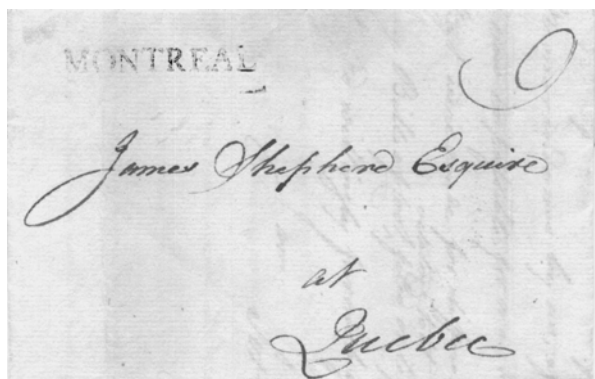 MONTREAL
9
James Shepherd Esquire
at
Quebec